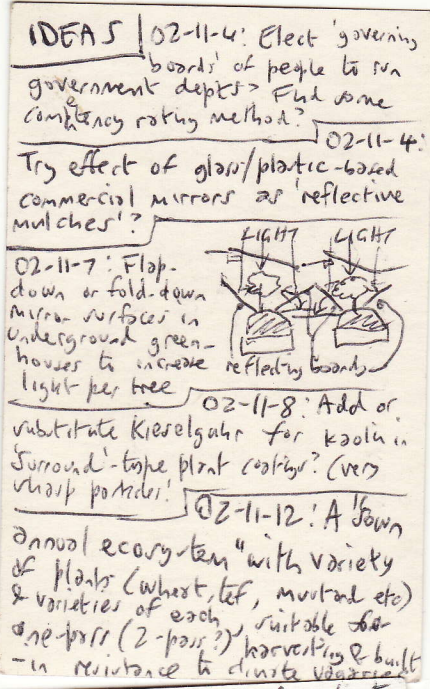 IDEAS | 02-11-4: Elect 'governing
boards' of people to run
government depts? Find some
competency rating method?
02-11-4:
Try effect of glass/plastic-based
commercial mirrors as 'reflective
mulches'?
LIGHT LIGHT
02-11-7: Flap-
down or fold-down
mirror surfaces in
underground green-
houses to increase
light per tree
reflecting boards
02-11-8: Add or
substitute Kieselguhr for kaolin in
'Surround'-type plant coatings? (very
sharp particles!
02-11-12: A "sown
annual ecosystem" with variety
of plants (wheat, tef, mustard etc)
& varieties of each, suitable for
one-pass (2-pass?) harvesting & built
-in resistance to climate vagaries